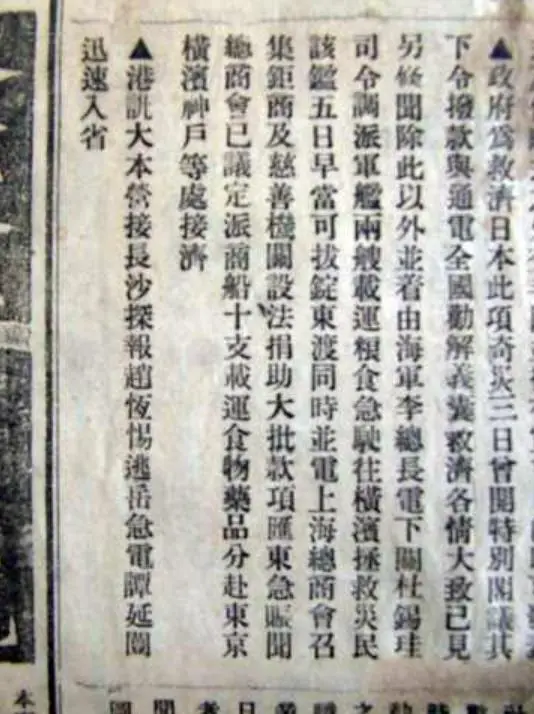 ▲政府爲救濟日本此項奇災三日曾開特別閣議其
下令撥款與通電全國勸解義囊救濟各情大致已見
另條聞除此以外並着由海軍李總長電下關杜錫珪
司令調派軍艦兩艘載運粮食急駛往橫濱拯救災民
該艦五日早當可拔錠東渡同時並電上海總商會召
集鉅商及慈善機關設法捐助大批款項匯東急賑聞
總商會已議定派商船十支載運食物藥品分赴東京
橫濱神戶等處接濟
▲港訊大本營接長沙探報趙恆惕逃岳急電譚延闓
迅速入省